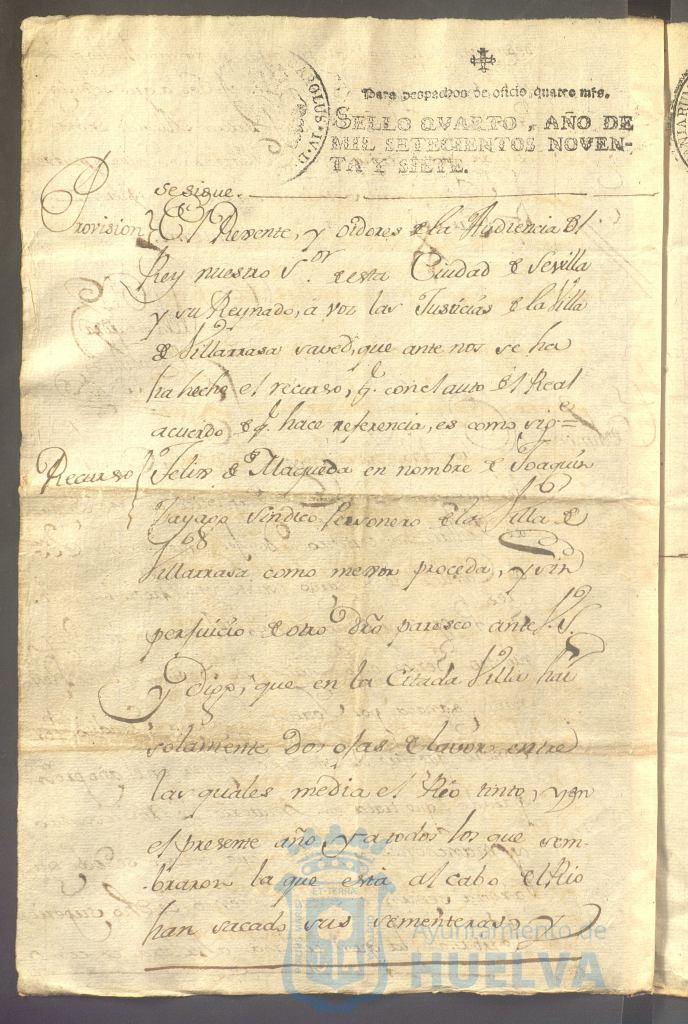 Para despachos de oficio quatro mrs.
SELLO QVARTO, AÑO DE
MIL SETECIENTOS NOVEN-
TA Y SIETE.
CAROLUS·IV·D·
se sigue.
Provision
El Rexente, y oidores de la Audiencia del
Rey nuestro S.or de esta Ciudad de Sevilla
y su Reynado, á vos las Justicias de la Villa
de Villarrasa saved, que ante nos se ha
ha hecho el recurso, q.e con el auto del Real
acuerdo de q.e hace referencia, es como sig.e=
Recurso
Felix de Maqueda en nombre de Joaquin
Sindico Personero de la Villa de
Villarrasa como mexor proceda, y sin
perjuicio de otro dro paresco ante V.S.
Y Digo, que en la Citada Villa hai
solamente dos ojas de lavor entre
las quales média el Rio tinto, y en
el presente año ya todos los que sem-
braron la que esta al cabo del Rio
han sacado sus sementeras, y
Ayuntamiento de
HUELVA